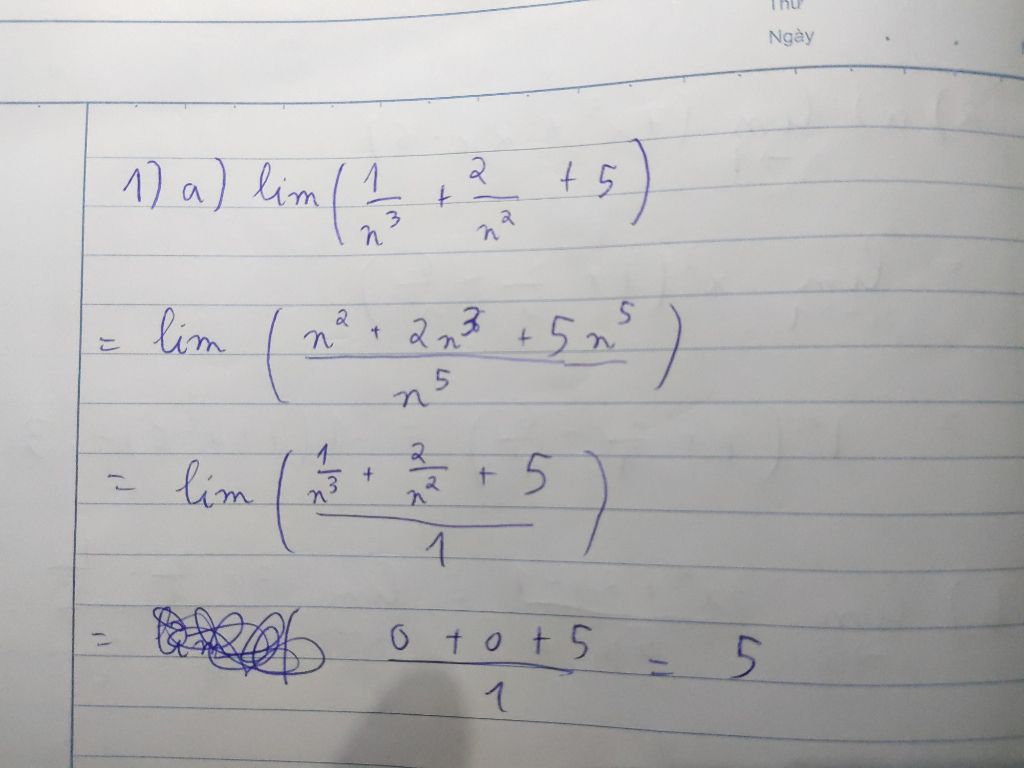 Thứ
Ngày
1) a) lim(1/n³ + 2/n² + 5)
= lim ((n² + 2n³ + 5n⁵)/n⁵)
= lim ((1/n³ + 2/n² + 5)/1)
= (0 + 0 + 5)/1 = 5